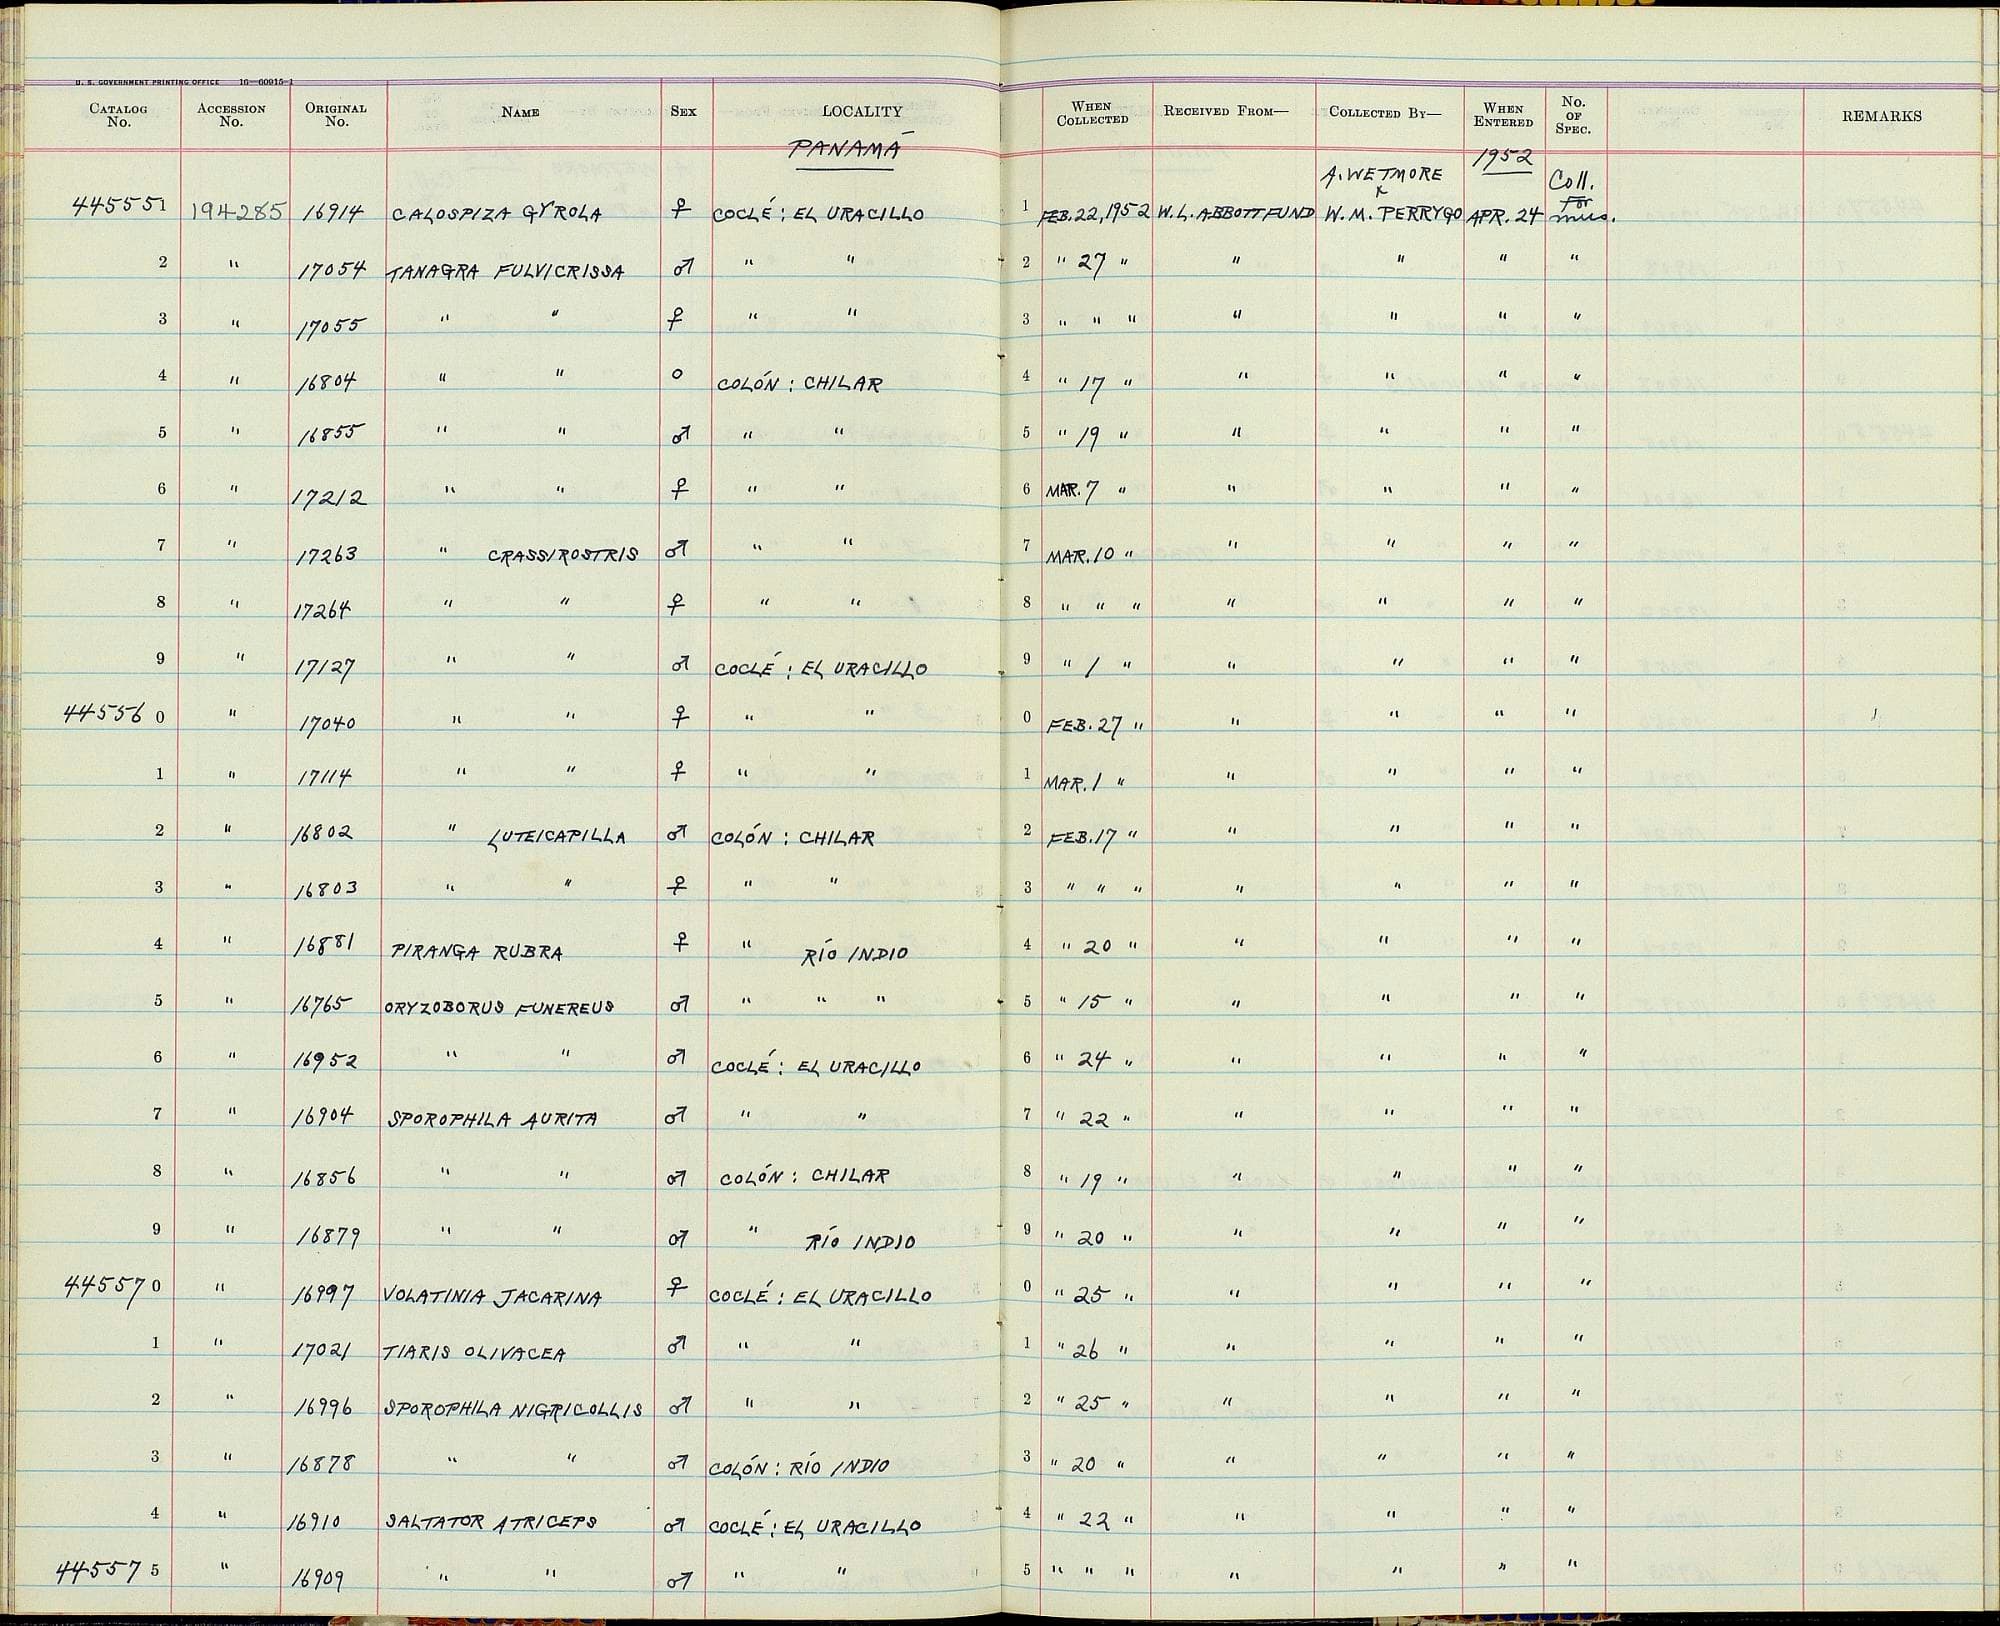 U. S. GOVERNMENT PRINTING OFFICE 16—60915-1
CATALOG No. ACCESSION No. ORIGINAL No. NAME SEX LOCALITY WHEN COLLECTED RECEIVED FROM— COLLECTED BY— WHEN ENTERED No. OF SPEC. REMARKS
PANAMÁ 1952
A. WETMORE & Coll. for
445551 194285 16914 CALOSPIZA GYROLA ♀ COCLÉ : EL URACILLO 1 FEB. 22, 1952 W. L. ABBOTT FUND W. M. PERRYGO APR. 24 mus.
2 " 17054 TANAGRA FULVICRISSA ♂ " " 2 " 27 " " " " "
3 " 17055 " " ♀ " " 3 " " " " " " "
4 " 16804 " " O COLÓN : CHILAR 4 " 17 " " " " "
5 " 16855 " " ♂ " " 5 " 19 " " " " "
6 " 17212 " " ♀ " " 6 MAR. 7 " " " " "
7 " 17263 " CRASSIROSTRIS ♂ " " 7 MAR. 10 " " " " "
8 " 17264 " " ♀ " " 8 " " " " " " "
9 " 17127 " " ♂ COCLÉ : EL URACILLO 9 " 1 " " " " "
445560 " 17040 " " ♀ " " 0 FEB. 27 " " " " "
1 " 17114 " " ♀ " " 1 MAR. 1 " " " " "
2 " 16802 " LUTEICAPILLA ♂ COLÓN : CHILAR 2 FEB. 17 " " " " "
3 " 16803 " " ♀ " " 3 " " " " " " "
4 " 16881 PIRANGA RUBRA ♀ " RÍO INDIO 4 " 20 " " " " "
5 " 16765 ORYZOBORUS FUNEREUS ♂ " " " 5 " 15 " " " " "
6 " 16952 " " ♂ COCLÉ : EL URACILLO 6 " 24 " " " " "
7 " 16904 SPOROPHILA AURITA ♂ " " 7 " 22 " " " " "
8 " 16856 " " ♂ COLÓN : CHILAR 8 " 19 " " " " "
9 " 16879 " " ♂ " RÍO INDIO 9 " 20 " " " " "
445570 " 16997 VOLATINIA JACARINA ♀ COCLÉ : EL URACILLO 0 " 25 " " " " "
1 " 17021 TIARIS OLIVACEA ♂ " " 1 " 26 " " " " "
2 " 16996 SPOROPHILA NIGRICOLLIS ♂ " " 2 " 25 " " " " "
3 " 16878 " " ♂ COLÓN : RÍO INDIO 3 " 20 " " " " "
4 " 16910 SALTATOR ATRICEPS ♂ COCLÉ : EL URACILLO 4 " 22 " " " " "
445575 " 16909 " " ♂ " " 5 " " " " " " "